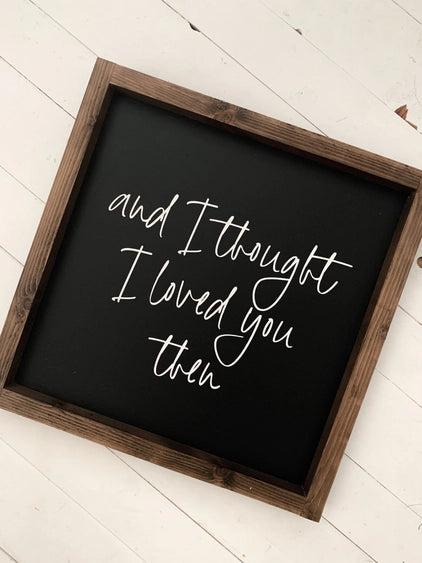 and I thought
I loved you
then